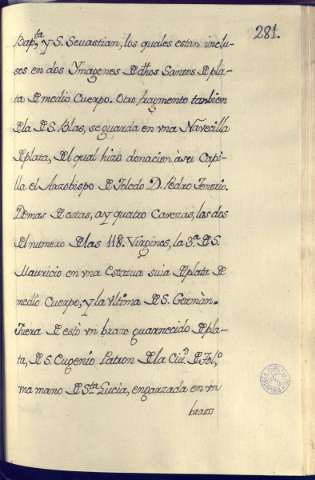 281.
Bap.ta y S. Sevastian, los quales estan inclu-
sos en dos Ymagenes de dhos Santos de pla-
ta de medio Cuerpo. Otro fragmento tanbien
de la de S. Blas, se guarda en vna Navecilla
de plata, de el qual hizo donacion à su Capi-
lla el Arzobispo de Toledo D. Pedro Tenorio.
Demas de estas, ay quatro Cavezas, las dos
de el numero de las 118. Virgines, la 3.a de S.
Mauricio en vna Estatua suia de plata de
medio Cuerpo, y la vltima de S. Germàn.
Fuera de esto vn brazo guarnecido de pla-
ta, de S. Eugenio Patron de la Ciu.d de Tol.o
vna mano de S.ta Lucia, engarzada en vn
brazo